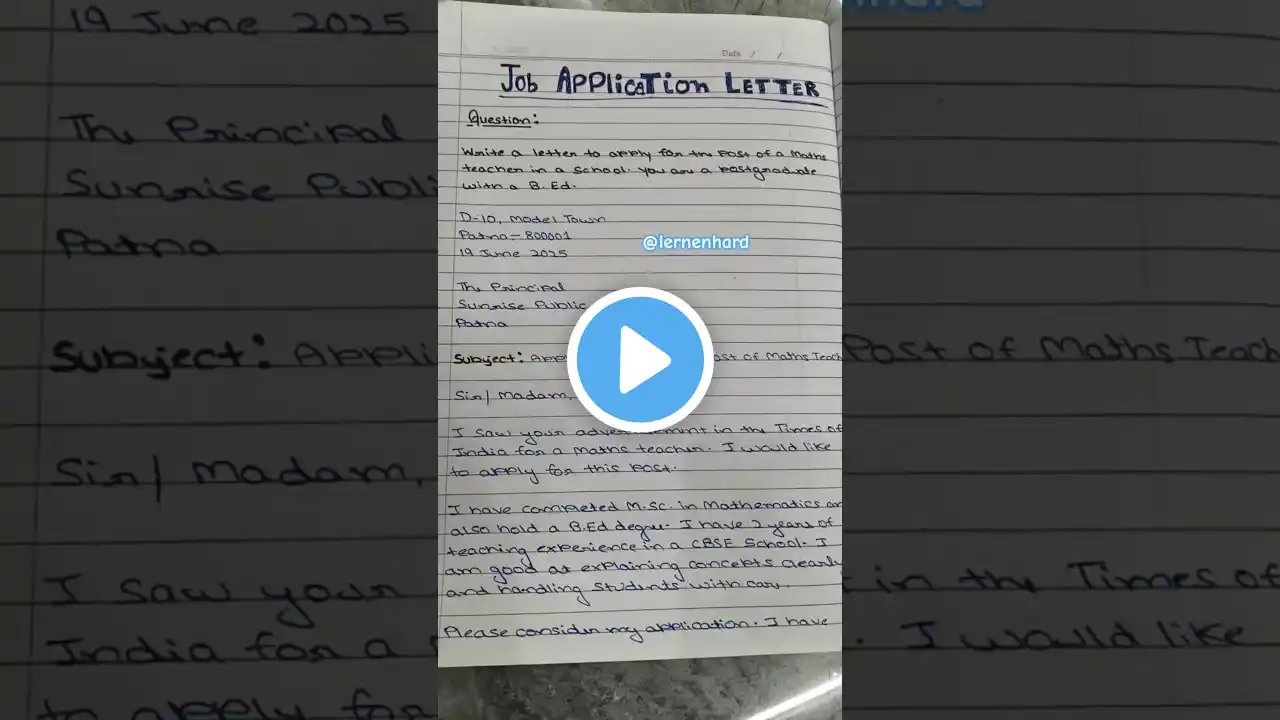 Date / /
JOB APPLICATION LETTER
Question:
Write a letter to apply for the Post of a Maths
teacher in a school. You are a Postgraduate
with a B.Ed.
D-10, Model Town
Patna-800001
19 June 2025
@lernenhard
The Principal
Sunrise Public
Patna
Subject: Post of Maths Teach
Sir/ Madam,
I saw your in the Times of
India for a maths teacher. I would like
to apply for this post.
I have completed M.Sc. in Mathematics
also hold a B.Ed degree. I have 2 years of
teaching experience in a CBSE School. I
am good at explaining concepts clearly
and handling students with care.
Please consider my application. I have
19 June 2025
The Principal
Sunrise Publi
Patna
Subject: Appli Post of Maths Teach
Sir/ Madam,
I saw your in the Times of
India for a . I would like
to apply for